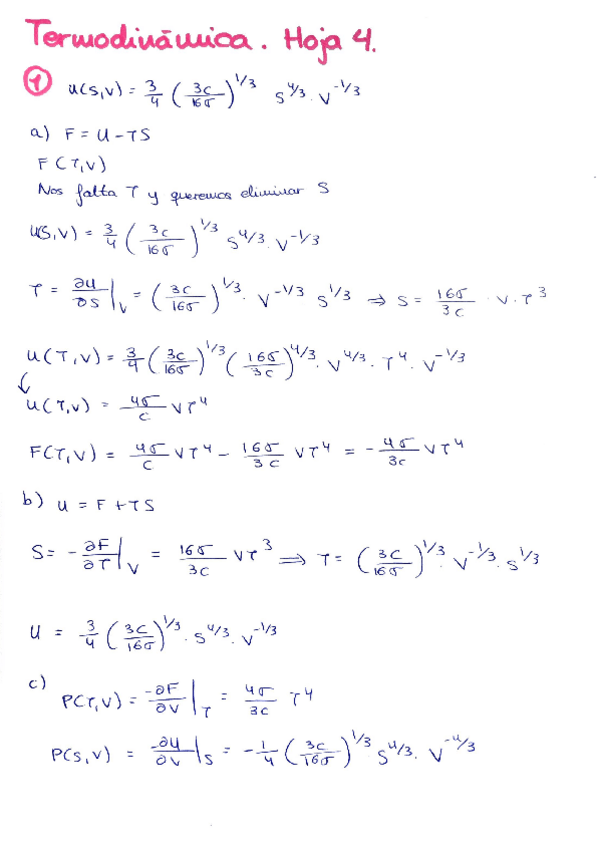 Termodinámica. Hoja 4.
① u(s,v) = 3/4 (3c/16σ)^1/3 s^4/3 · v^-1/3
a) F = U - TS
F(T,V)
Nos falta T y queremos eliminar S
U(S,V) = 3/4 (3c/16σ)^1/3 S^4/3 · V^-1/3
T = ∂U/∂S|_V = (3c/16σ)^1/3 · V^-1/3 S^1/3 ⇒ S = 16σ/3c · V · T^3
U(T,V) = 3/4 (3c/16σ)^1/3 (16σ/3c)^4/3 · V^4/3 · T^4 · V^-1/3
U(T,V) = 4σ/c VT^4
F(T,V) = 4σ/c VT^4 - 16σ/3c VT^4 = - 4σ/3c VT^4
b) U = F + TS
S = - ∂F/∂T|_V = 16σ/3c VT^3 ⟹ T = (3c/16σ)^1/3 · V^-1/3 · S^1/3
U = 3/4 (3c/16σ)^1/3 · S^4/3 · V^-1/3
c) P(T,V) = -∂F/∂V|_T = 4σ/3c T^4
P(S,V) = -∂U/∂V|_S = - 1/4 (3c/16σ)^1/3 S^4/3 · V^-4/3